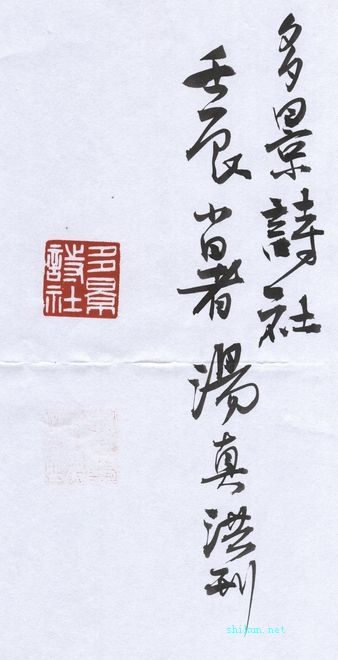 多景詩社
壬辰小暑湯真洪刊
多景
詩社
shiwun.net